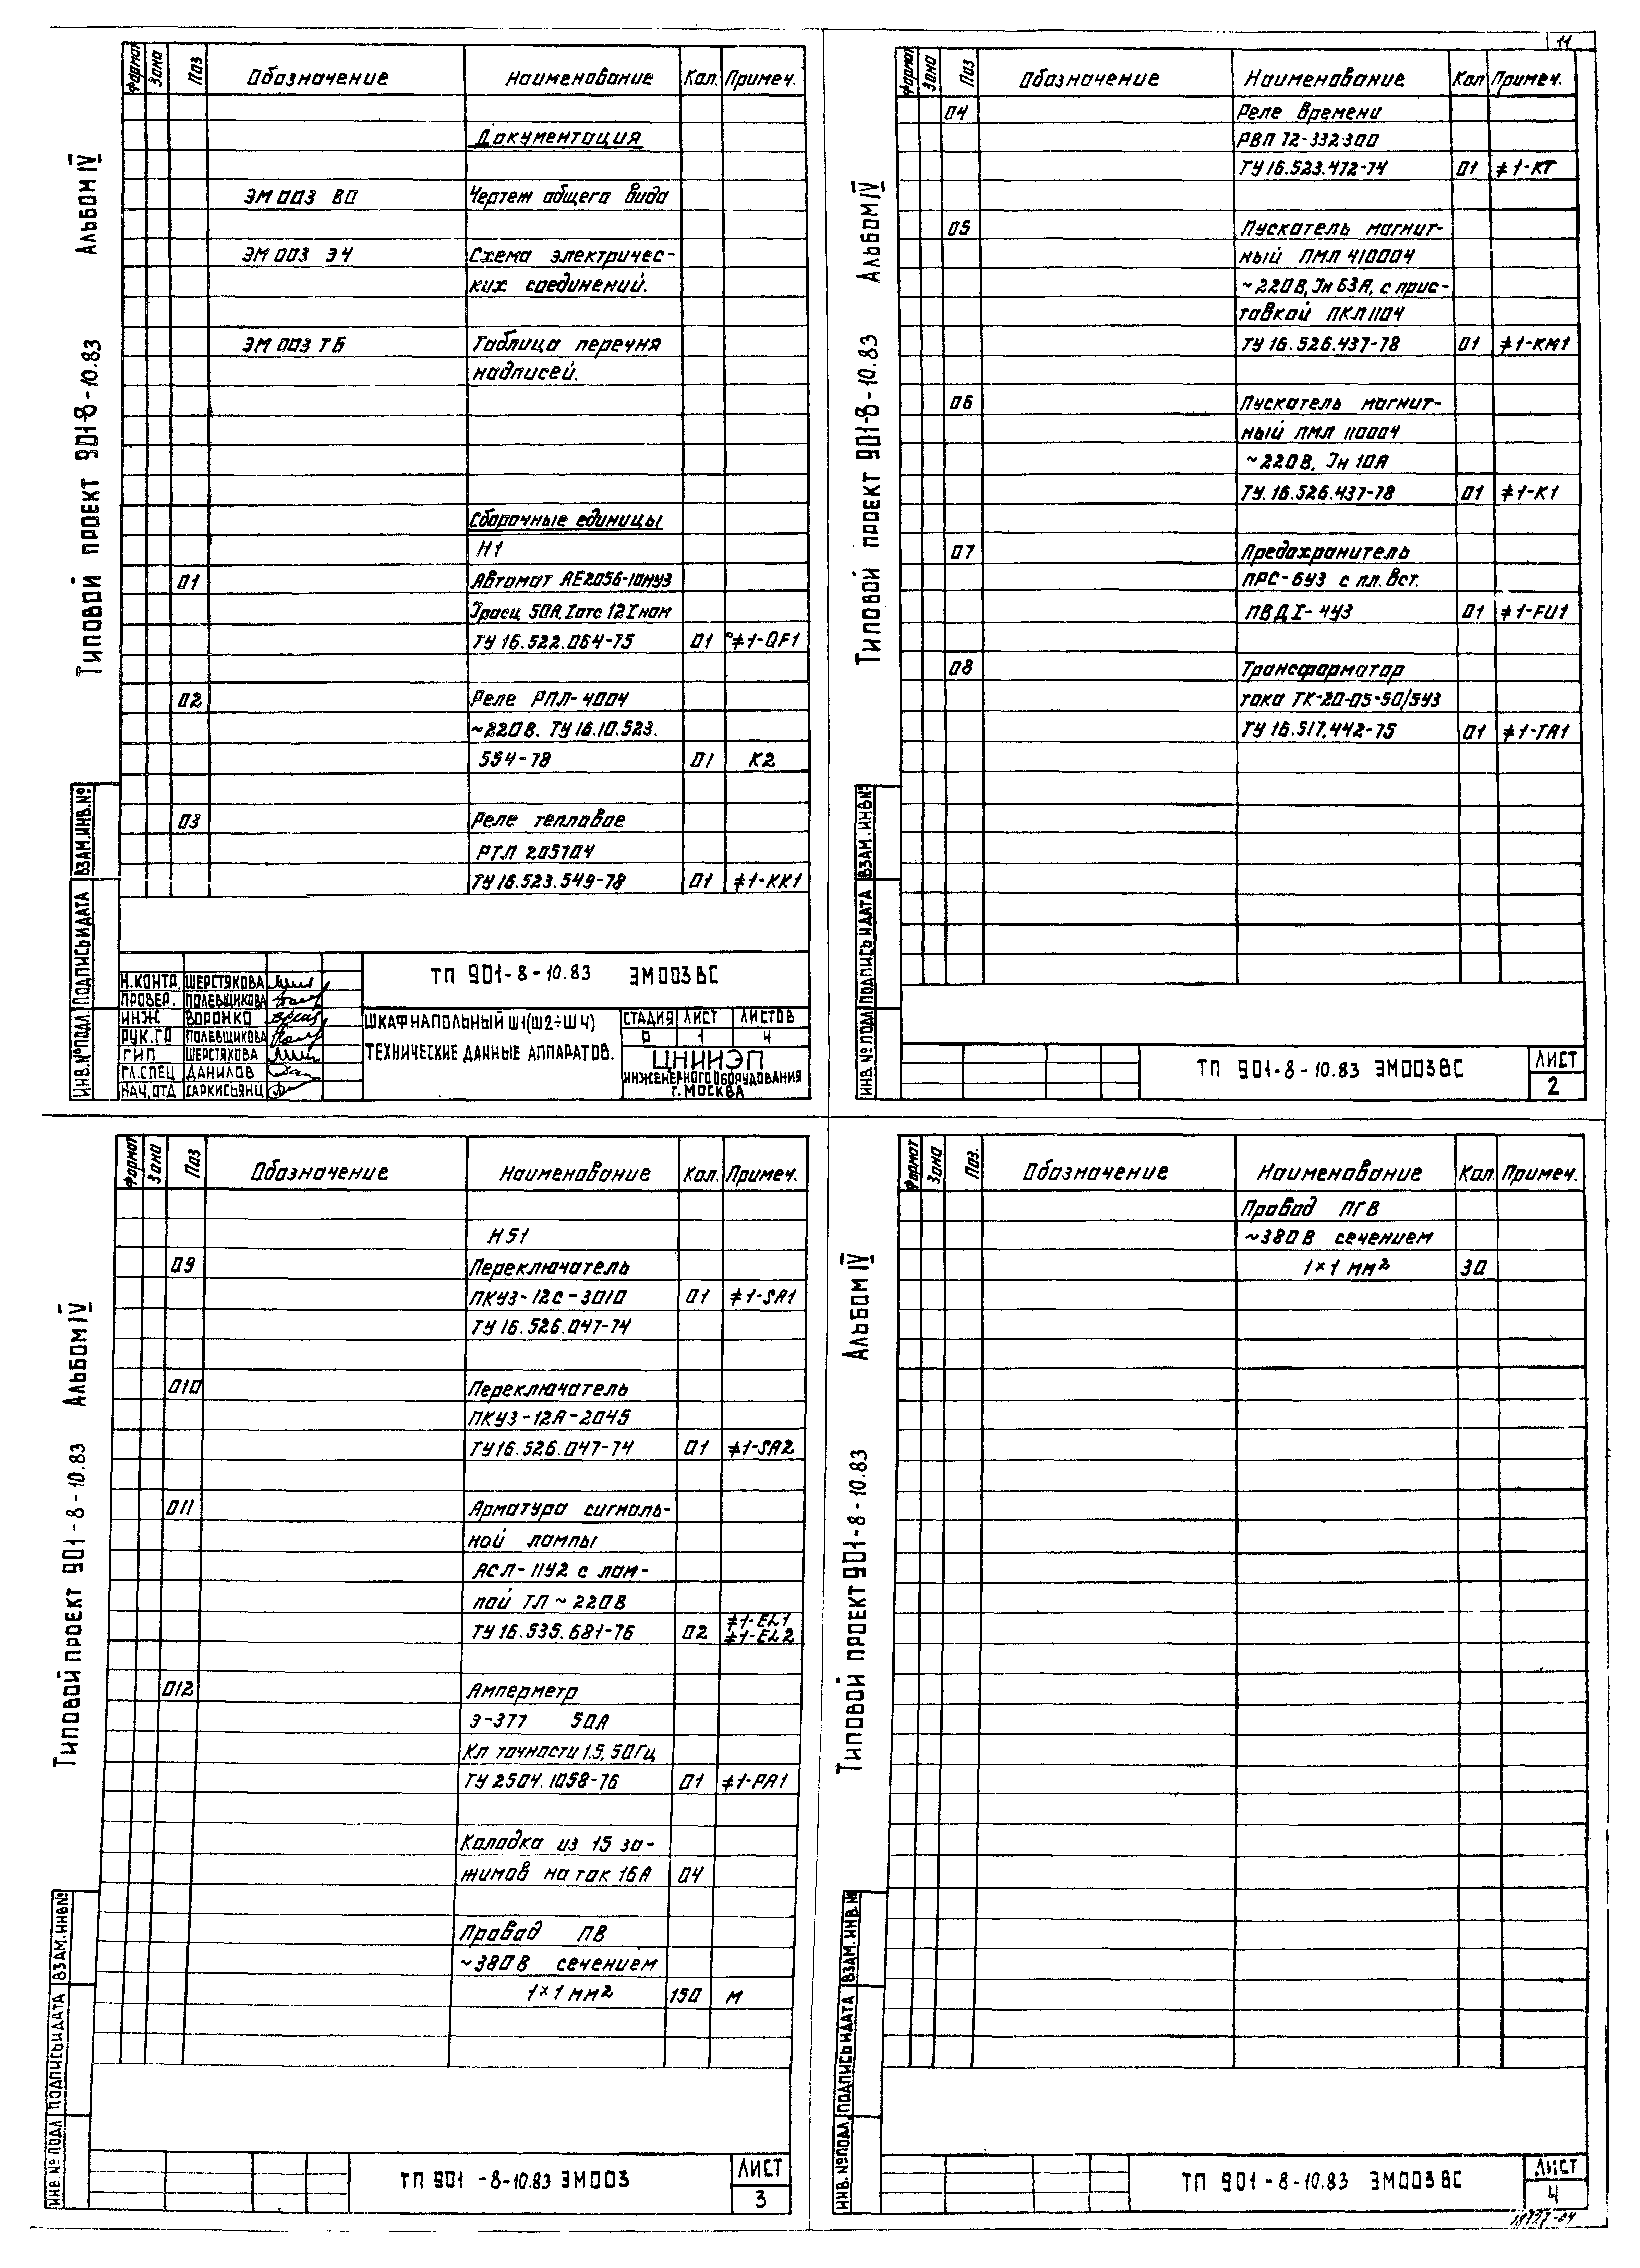 11
Формат Зона Поз Обозначение Наименование Кол. Примеч.
Документация
ЭМ 003 ВО Чертеж общего вида
ЭМ 003 Э4 Схема электричес-
ких соединений.
ЭМ 003 ТБ Таблица перечня
надписей.
Сборочные единицы
Н1
01 Автомат АЕ2056-10НУЗ
Iрасц. 50А, Iотс 12Iном
ТУ 16.522.064-75 01 ≠1-QF1
02 Реле РПЛ-4004
~220В. ТУ 16.10.523.
554-78 01 К2
03 Реле тепловое
РТЛ 205704
ТУ 16.523.549-78 01 ≠1-КК1
Альбом IV
Типовой проект 901-8-10.83
Взам.инв.№
Подпись и дата
Инв.№ подл.
Н.контр. Шерстякова
Провер. Полевщикова
Инж Воронко
Рук.гр Полевщикова
ГИП Шерстякова
Гл.спец Данилов
Нач.отд Саркисьянц
ТП 901-8-10.83 ЭМ003ВС
Шкаф напольный Ш1(Ш2÷Ш4)
Технические данные аппаратов.
Стадия Лист Листов
Р 1 4
ЦНИИЭП
инженерного оборудования
г. Москва
Формат Зона Поз Обозначение Наименование Кол Примеч.
04 Реле времени
РВП 72-332300
ТУ 16.523.472-74 01 ≠1-КТ
05 Пускатель магнит-
ный ПМЛ 410004
~220В, Iн 63А, с прис-
тавкой ПКЛ 1104
ТУ 16.526.437-78 01 ≠1-КМ1
06 Пускатель магнит-
ный ПМЛ 110004
~220В, Iн 10А
ТУ. 16.526.437-78 01 ≠1-К1
07 Предохранитель
ПРС-6УЗ с пл. вст.
ПВДI-4УЗ 01 ≠1-FU1
08 Трансформатор
тока ТК-20-05-50/5УЗ
ТУ 16.517.442-75 01 ≠1-ТА1
Альбом IV
Типовой проект 901-8-10.83
Взам.инв.№
Подпись и дата
Инв.№ подл.
ТП 901-8-10.83 ЭМ003ВС
Лист
2
Формат Зона Поз Обозначение Наименование Кол. Примеч.
Н51
09 Переключатель
ПКУЗ-12С-3010 01 ≠1-SA1
ТУ 16.526.047-74
010 Переключатель
ПКУЗ-12А-2045
ТУ 16.526.047-74 01 ≠1-SA2
011 Арматура сигналь-
ной лампы
АСЛ-11У2 с лам-
пой ТЛ ~220В
≠1-EL1
ТУ 16.535.681-76 02 ≠1-EL2
012 Амперметр
Э-377 50А
Кл точности 1.5, 50Гц
ТУ 2504.1058-76 01 ≠1-РА1
Колодка из 15 за-
жимов на ток 16А 04
Провод ПВ
~380В сечением
1×1 мм² 150 м
Альбом IV
Типовой проект 901-8-10.83
Взам.инв№
Подпись и дата
Инв.№ подл
ТП 901 -8-10.83 ЭМ003
Лист
3
Формат Зона Поз. Обозначение Наименование Кол. Примеч.
Провод ПГВ
~380В сечением
1×1 мм² 30
Альбом IV
Типовой проект 901-8-10.83
Взам.инв.№
Подпись и дата
Инв.№ подл
ТП 901-8-10.83 ЭМ003ВС
Лист
4